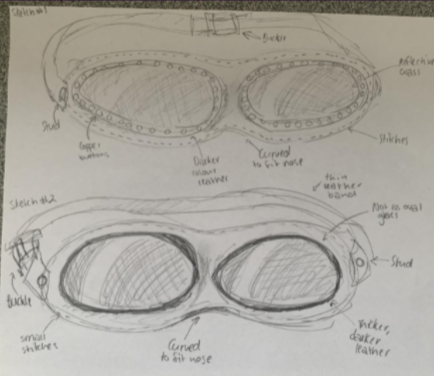 Sketch #1
Buckle
Reflective
Glass
Stud
Copper
buttons
Darker
colour
leather
Curved
to fit nose
Stitches
Sketch #2
thin
leather
band
glass
Stud
Buckle
small
stitches
Curved
to fit nose
Thicker,
darker
leather